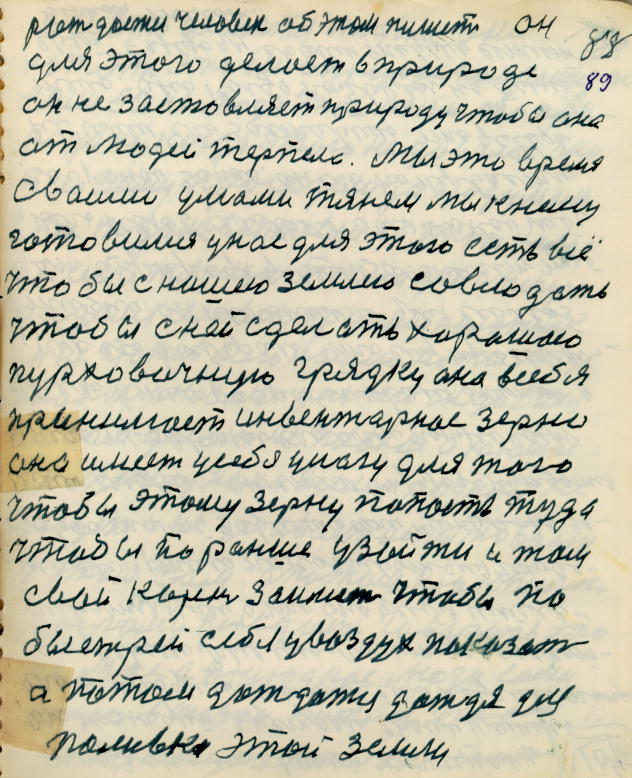 рождости человек об этом пишет он 88
для этого делоет вприроде 89
он не застовляет природу чтобы она
от людей терпела. Мы это время
своими умами тянем мы к нему
готовимся унас для этого есть всё
что бы с нашею землею совлодать
чтобы с ней сделать хорошою
пурховичную грядку она всебя
принимает инвентарное зерно
она имеет усебя улагу для того
чтобы этому зерну попасть туда
чтобы пораньше узойти и там
свой корен займет чтобы по
быстрей себя увоздух показат
а потом дождажи дождя для
поливки этой земли